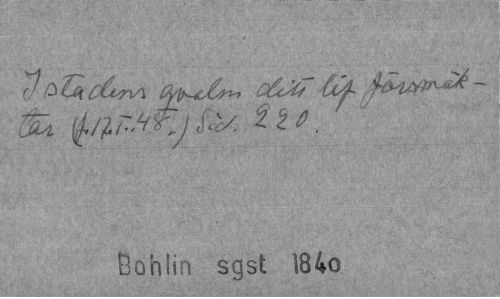 I stadens qvalm ditt lif försmäk-
tar (f. 17. I. 48.) Sid. 220.
Bohlin sgst 1840